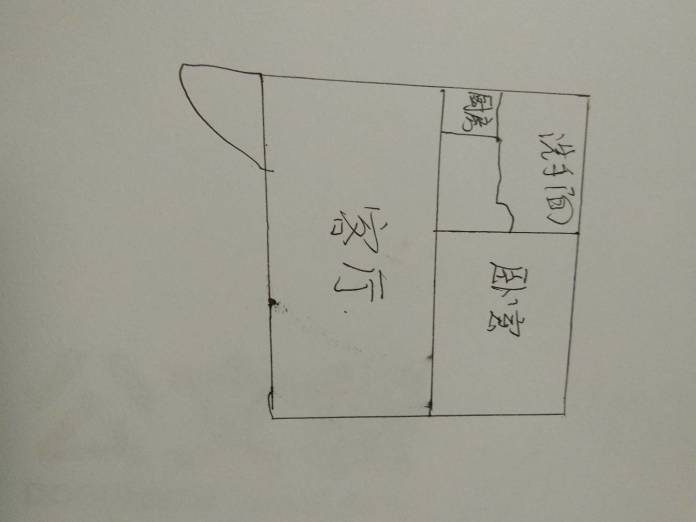 厨房
洗手间
客厅
卧室